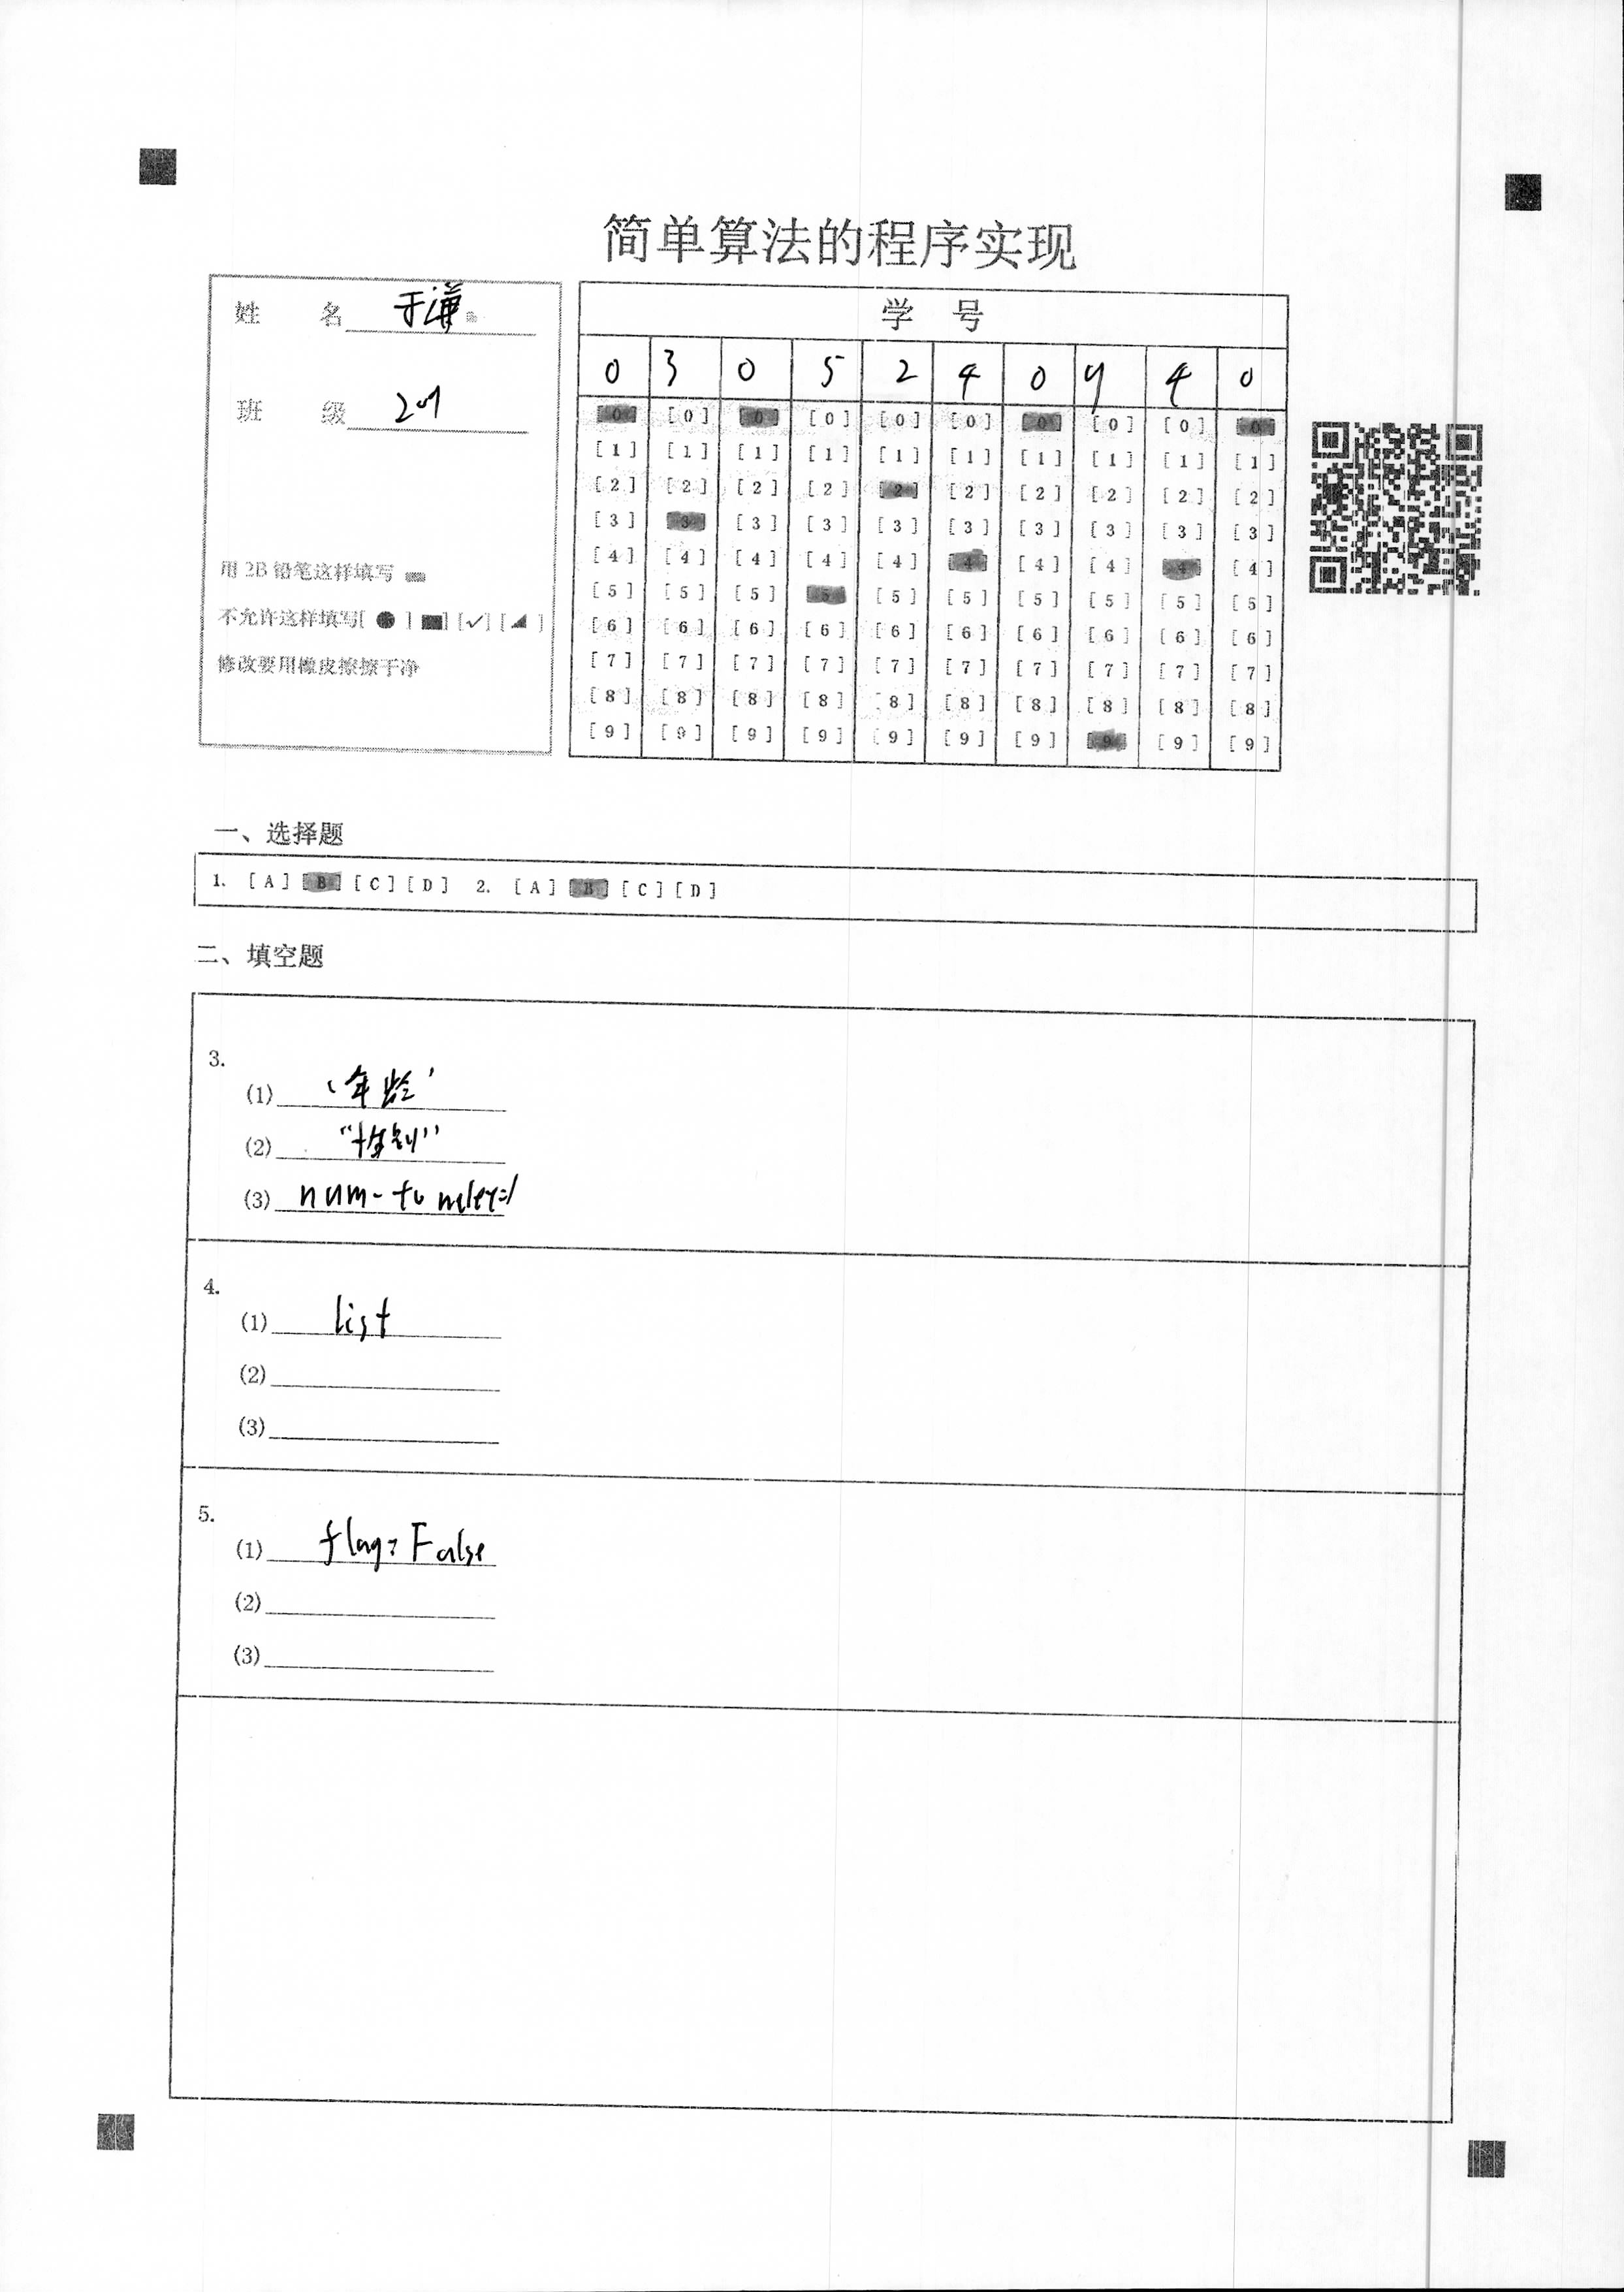 简单算法的程序实现
姓 名 于谦
班 级 201
用 2B 铅笔这样填写
不允许这样填写[ ● ] ■] [✓] [◢ ]
修改要用橡皮擦擦干净
学 号
0 3 0 5 2 4 0 9 4 0
[0] [0] [0] [0] [0] [0] [0] [0] [0] [0]
[1] [1] [1] [1] [1] [1] [1] [1] [1] [1]
[2] [2] [2] [2] [2] [2] [2] [2] [2] [2]
[3] [3] [3] [3] [3] [3] [3] [3] [3] [3]
[4] [4] [4] [4] [4] [4] [4] [4] [4] [4]
[5] [5] [5] [5] [5] [5] [5] [5] [5] [5]
[6] [6] [6] [6] [6] [6] [6] [6] [6] [6]
[7] [7] [7] [7] [7] [7] [7] [7] [7] [7]
[8] [8] [8] [8] [8] [8] [8] [8] [8] [8]
[9] [9] [9] [9] [9] [9] [9] [9] [9] [9]
一、选择题
1. [A] [B] [C] [D] 2. [A] [B] [C] [D]
二、填空题
3.
(1) '年龄'
(2) "性别"
(3) num-
4.
(1) list
(2)
(3)
5.
(1) flag=False
(2)
(3)